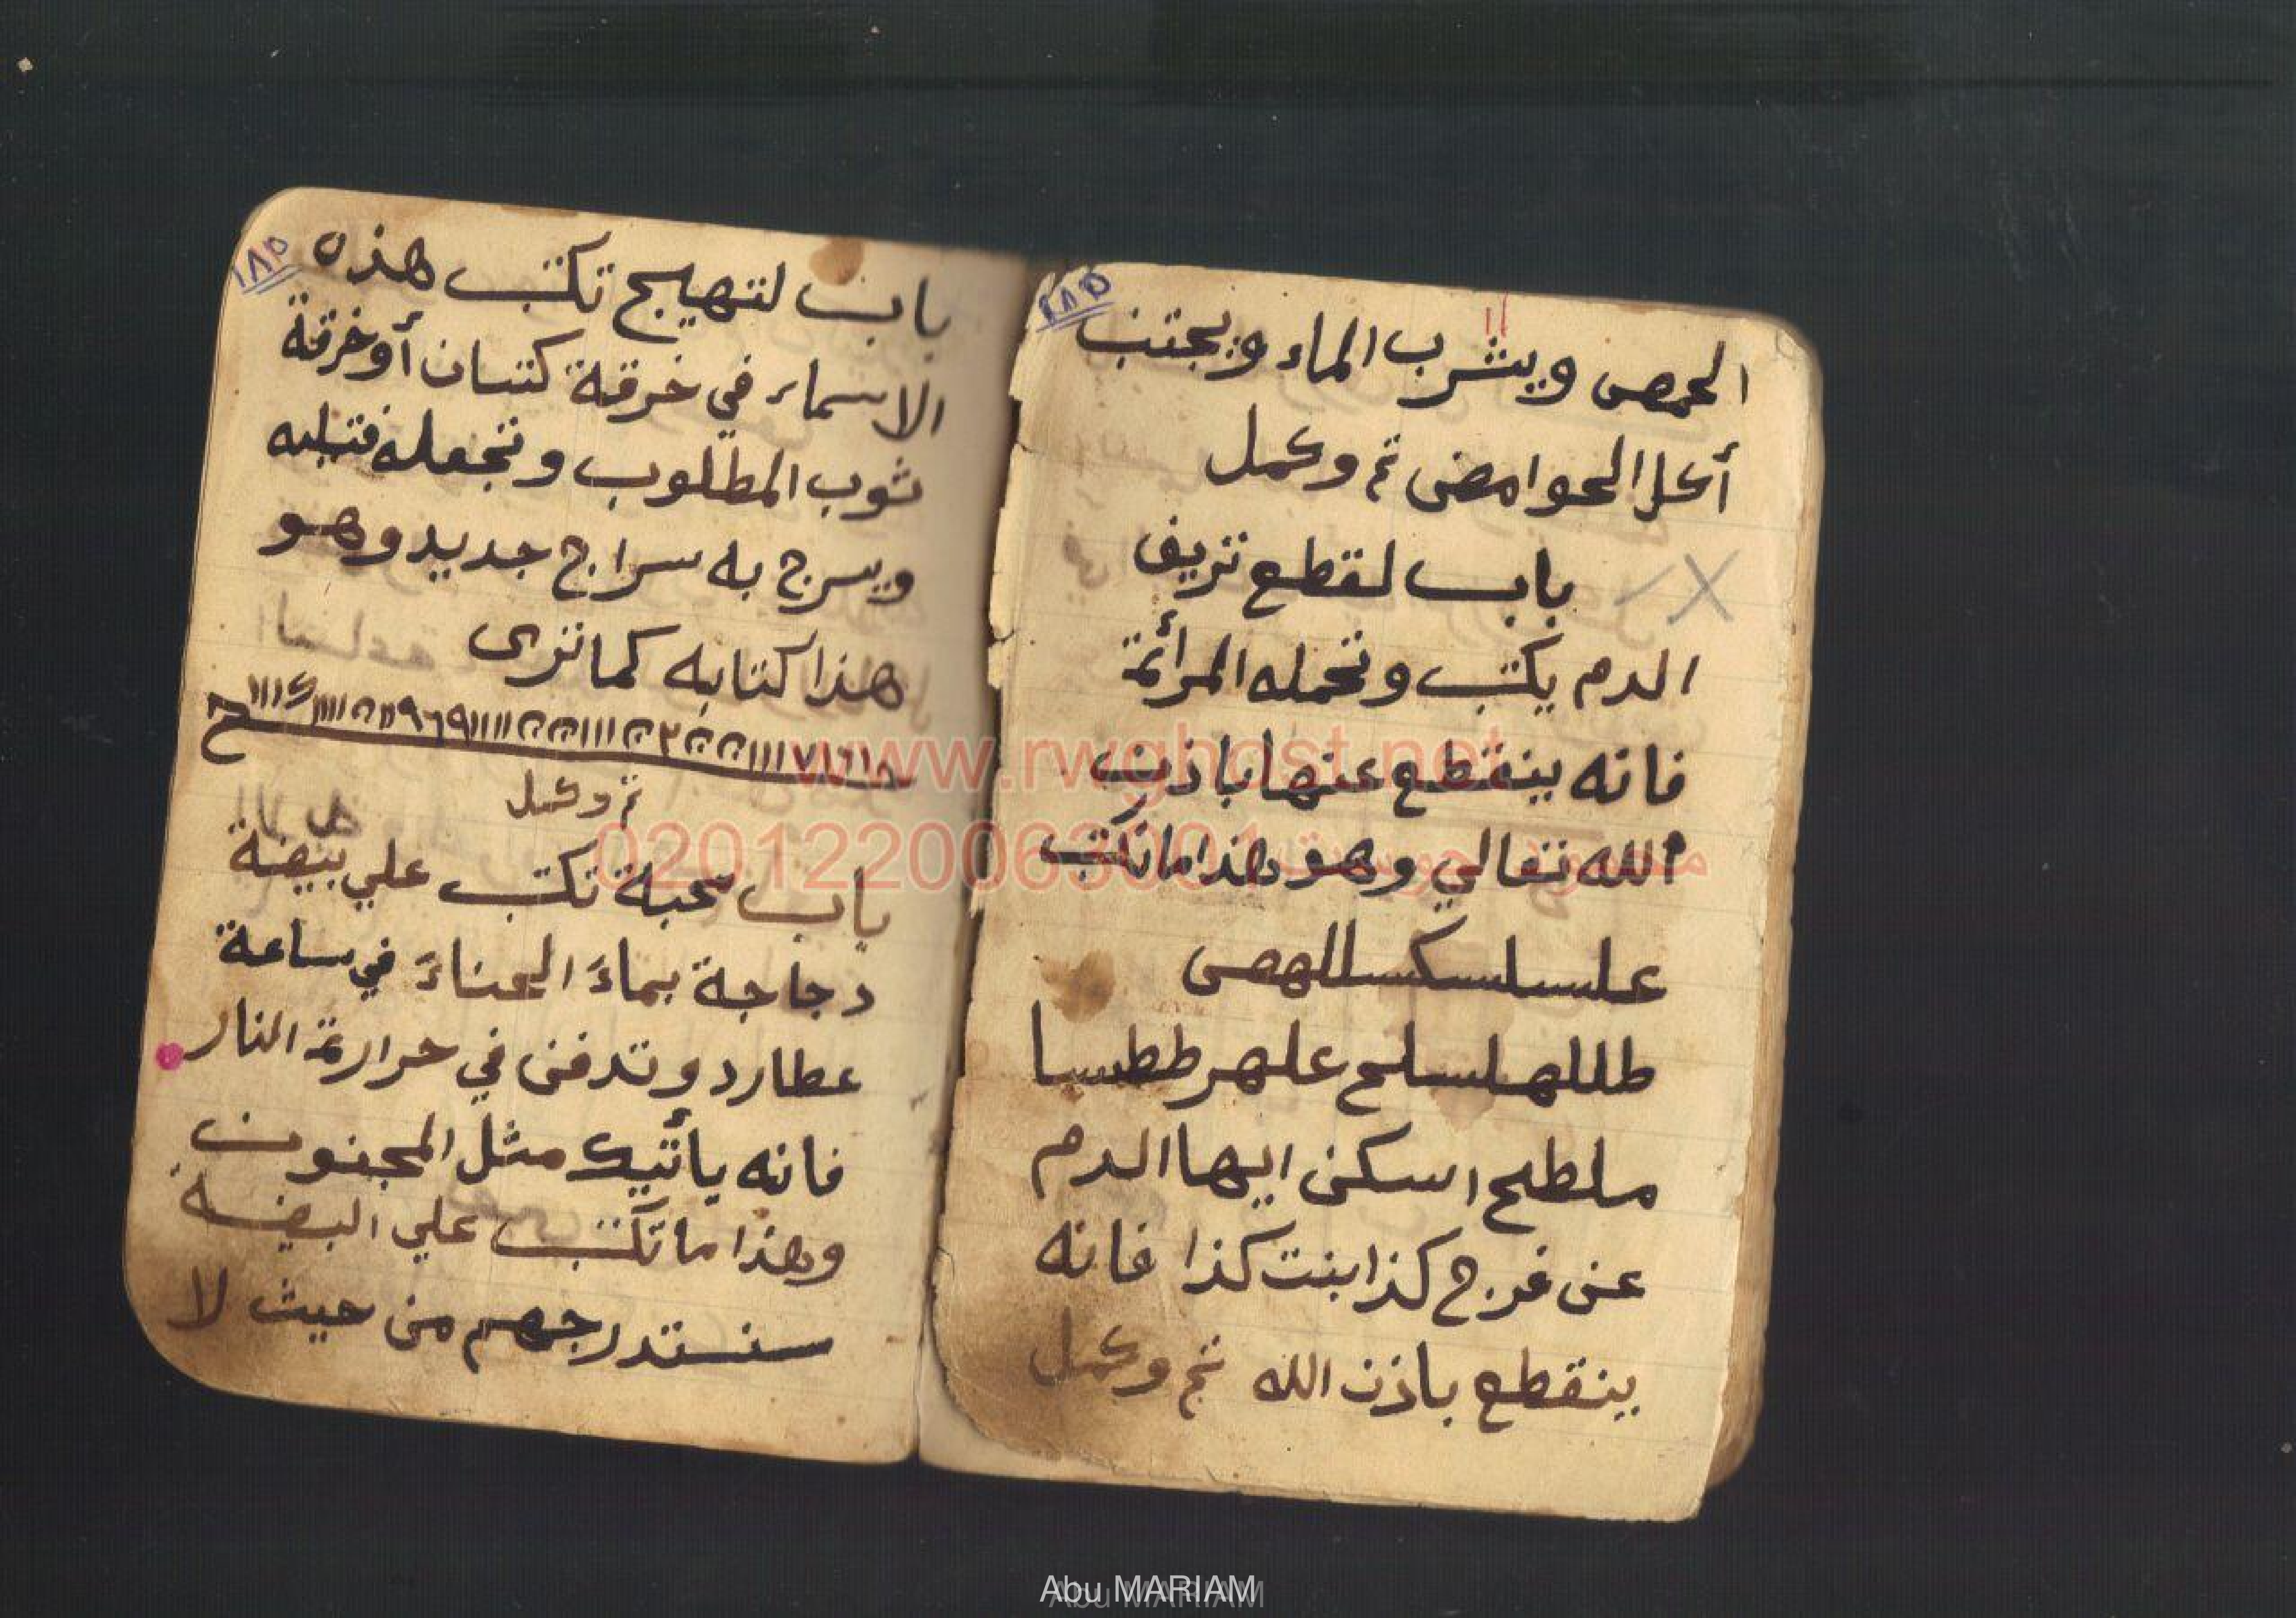 ١٨٥
الحمص ويشرب الماء ويجتنب
أكل الحوامض تم وكمل
باب لقطع نزيف
الدم يكتب وتحمله المرأة
فانه ينقطع عنها باذن
الله تعالي وهو هذا ما تكتب
علسلسكسللهصى
طللهلسلح علهر ططسا
ملطح اسكن ايها الدم
عن فرج كذا بنت كذا فانه
ينقطع باذن الله تم وكمل
١٨٥
باب لتهيج تكتب هذه
الاسماء في خرقة كتان أو خرقة
ثوب المطلوب وتجعله فتيله
ويسرج به سراج جديد وهو
هذا كتابه كما ترى
تم وكمل
باب محبة تكتب علي بيضة
دجاجة بماء الحناء في ساعة
عطارد وتدفن في حرارة النار
فانه يأتيك مثل المجنون
وهذا ما تكتب علي البيضة
سنستدرجهم من حيث لا
www.rwghost.net
0201220063001
Abu MARIAM